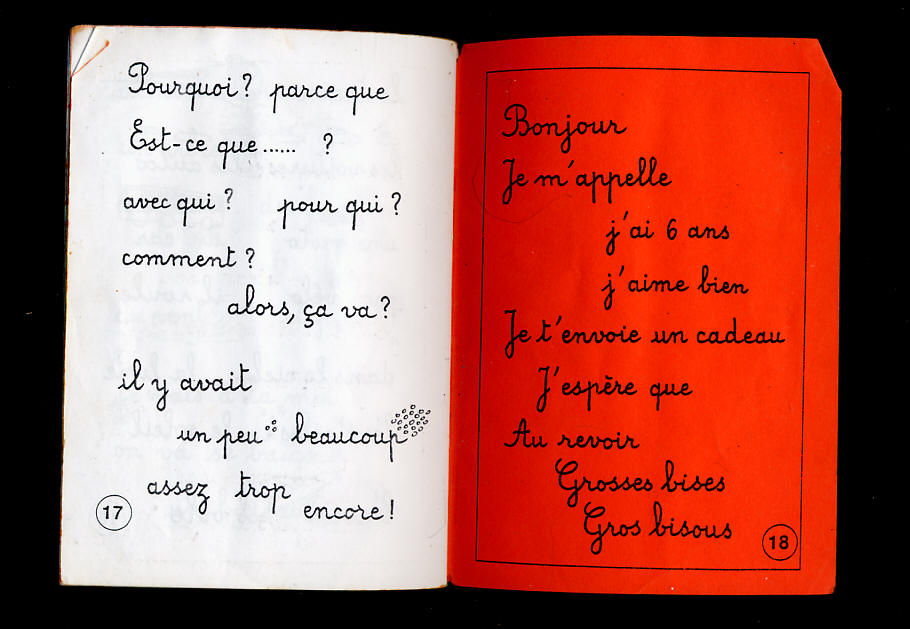 Pourquoi ? parce que
Est-ce que ...... ?
avec qui ? pour qui ?
comment ?
alors, ça va ?
il y avait
un peu beaucoup
assez trop
encore !
17
Bonjour
Je m'appelle
j'ai 6 ans
j'aime bien
Je t'envoie un cadeau
J'espère que
Au revoir
Grosses bises
Gros bisous
18